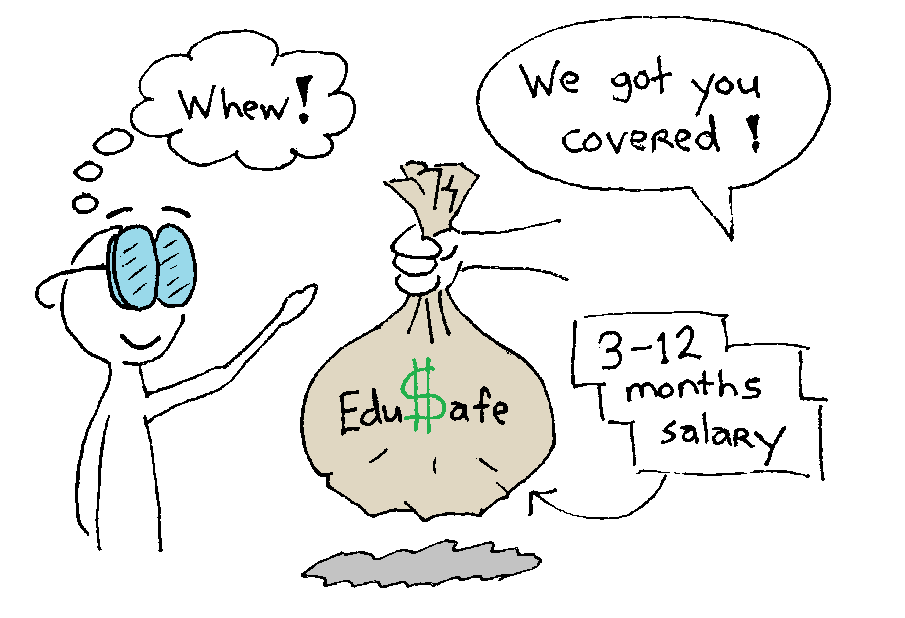 Whew!
We got you
covered!
Edu$afe
3-12
months
salary